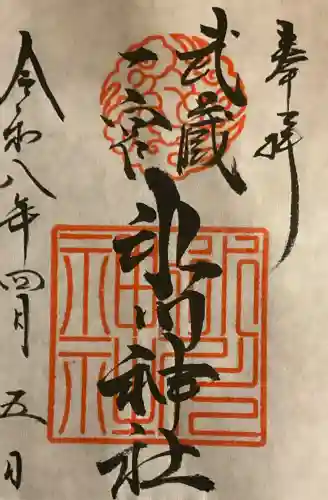 奉拝
武蔵
一宮
氷川神社
令和八年四月五日
氷川
神社